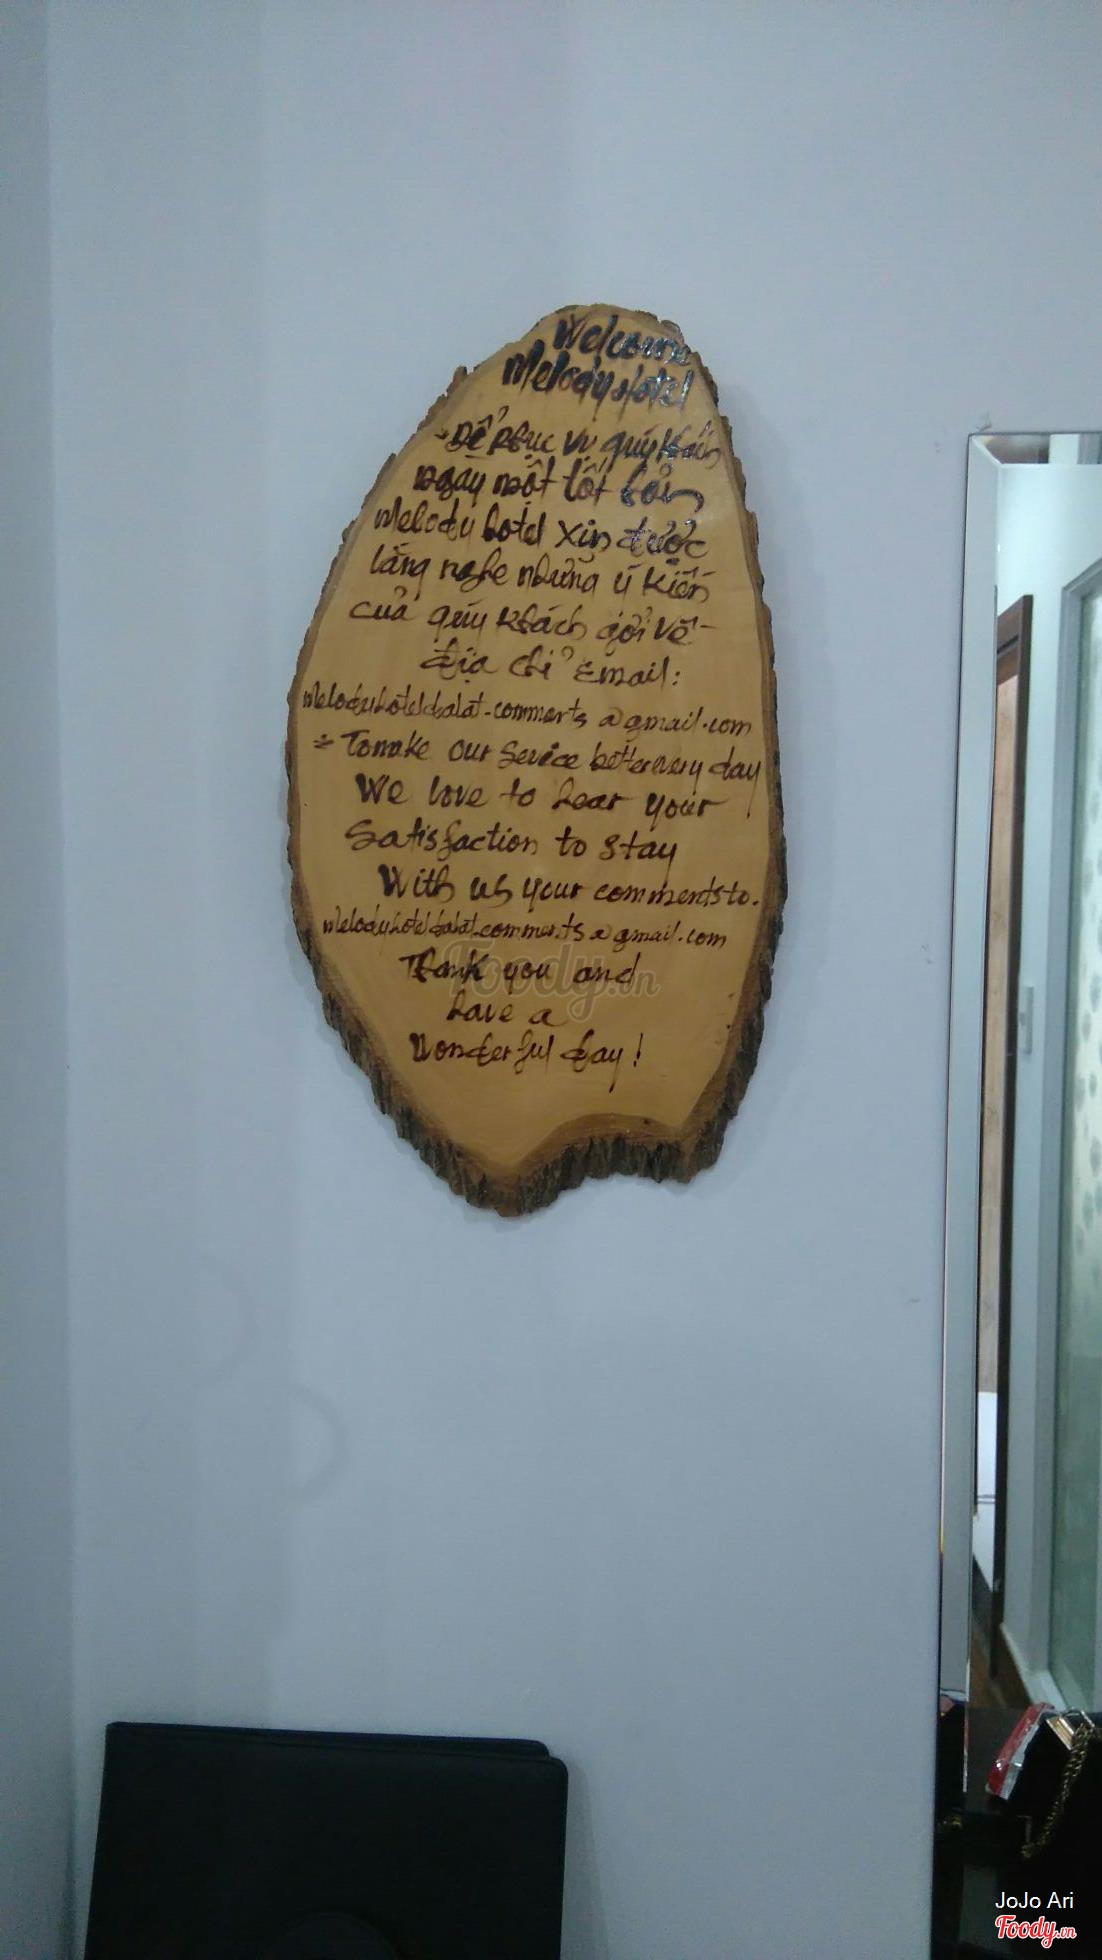 Welcome
Melody Hotel
- Để phục vụ quý khách
ngày một tốt hơn
Melody hotel xin được
lắng nghe những ý kiến
của quý khách gởi về
địa chỉ Email:
Melodyhoteldalat.comments@gmail.com
÷ To make our Service better every day
We love to hear your
Satisfaction to stay
With us your comments to.
Melodyhoteldalat.comments@gmail.com
Thank you and
have a
Wonderful day!
Foody.vn
JoJo Ari
Foody.vn